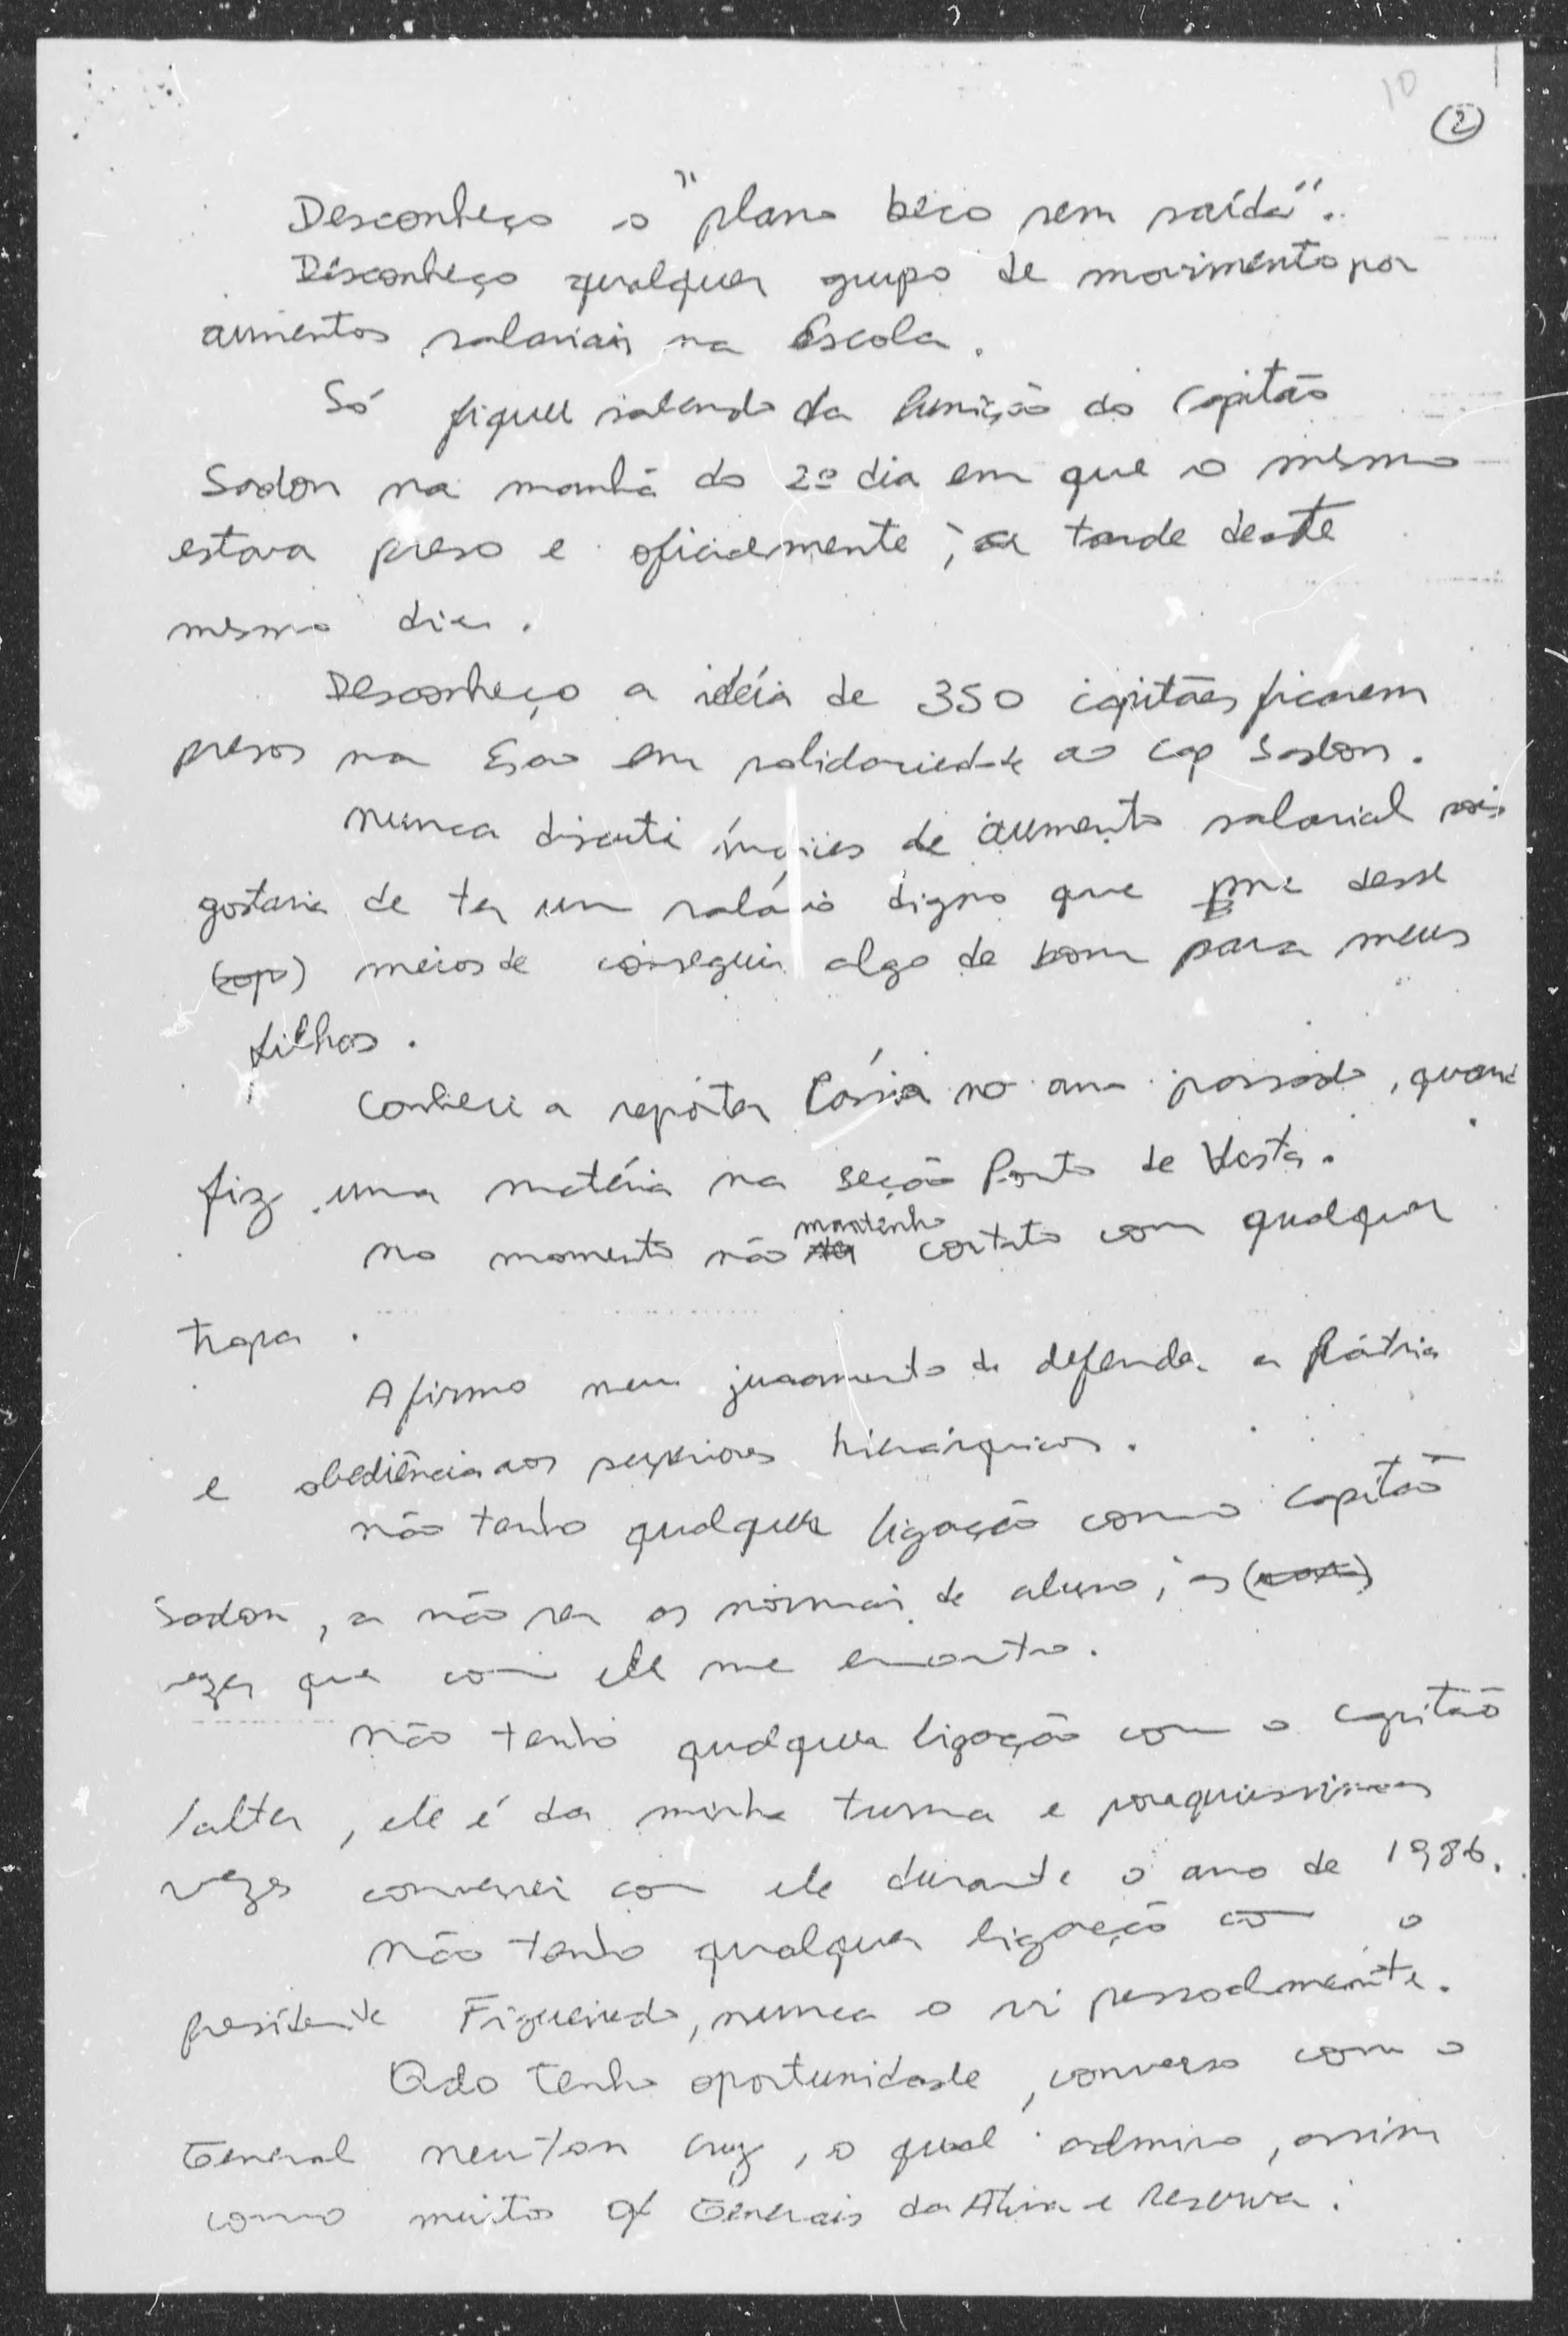 10
2
Desconheço o "plano beco sem saída".
Desconheço qualquer grupo de movimento por
aumentos salariais na Escola.
Só fiquei sabendo da punição do Capitão
Sadon na manhã do 2º dia em que o mesmo
estava preso e oficialmente, a tarde deste
mesmo dia.
Desconheço a idéia de 350 capitães ficarem
presos na Esao em solidariedade ao Cap Sadon.
Nunca discuti índices de aumento salarial pois
gostaria de ter um salário digno que me desse
meios de conseguir algo de bom para meus
filhos.
Conheci a repórter Cássia no ano passado, quand
fiz uma matéria na seção Ponto de Vista.
No momento não mantenho contato com qualquer
tropa.
Afirmo meu juramento de defender a Pátria
e obediência aos superiores hierárquicos.
Não tenho qualquer ligação com o Capitão
Sadon, a não ser as normais de aluno, as
vezes que com ele me encontro.
Não tenho qualquer ligação com o capitão
Valter, ele é da minha turma e pouquissimas
vezes conversei com ele durante o ano de 1986.
Não tenho qualquer ligação com o
presidente Figueiredo, nunca o vi pessoalmente.
Qdo tenho oportunidade, converso com o
General Newton Cruz, o qual admiro, assim
como muitos Of Generais da Ativa e Reserva.